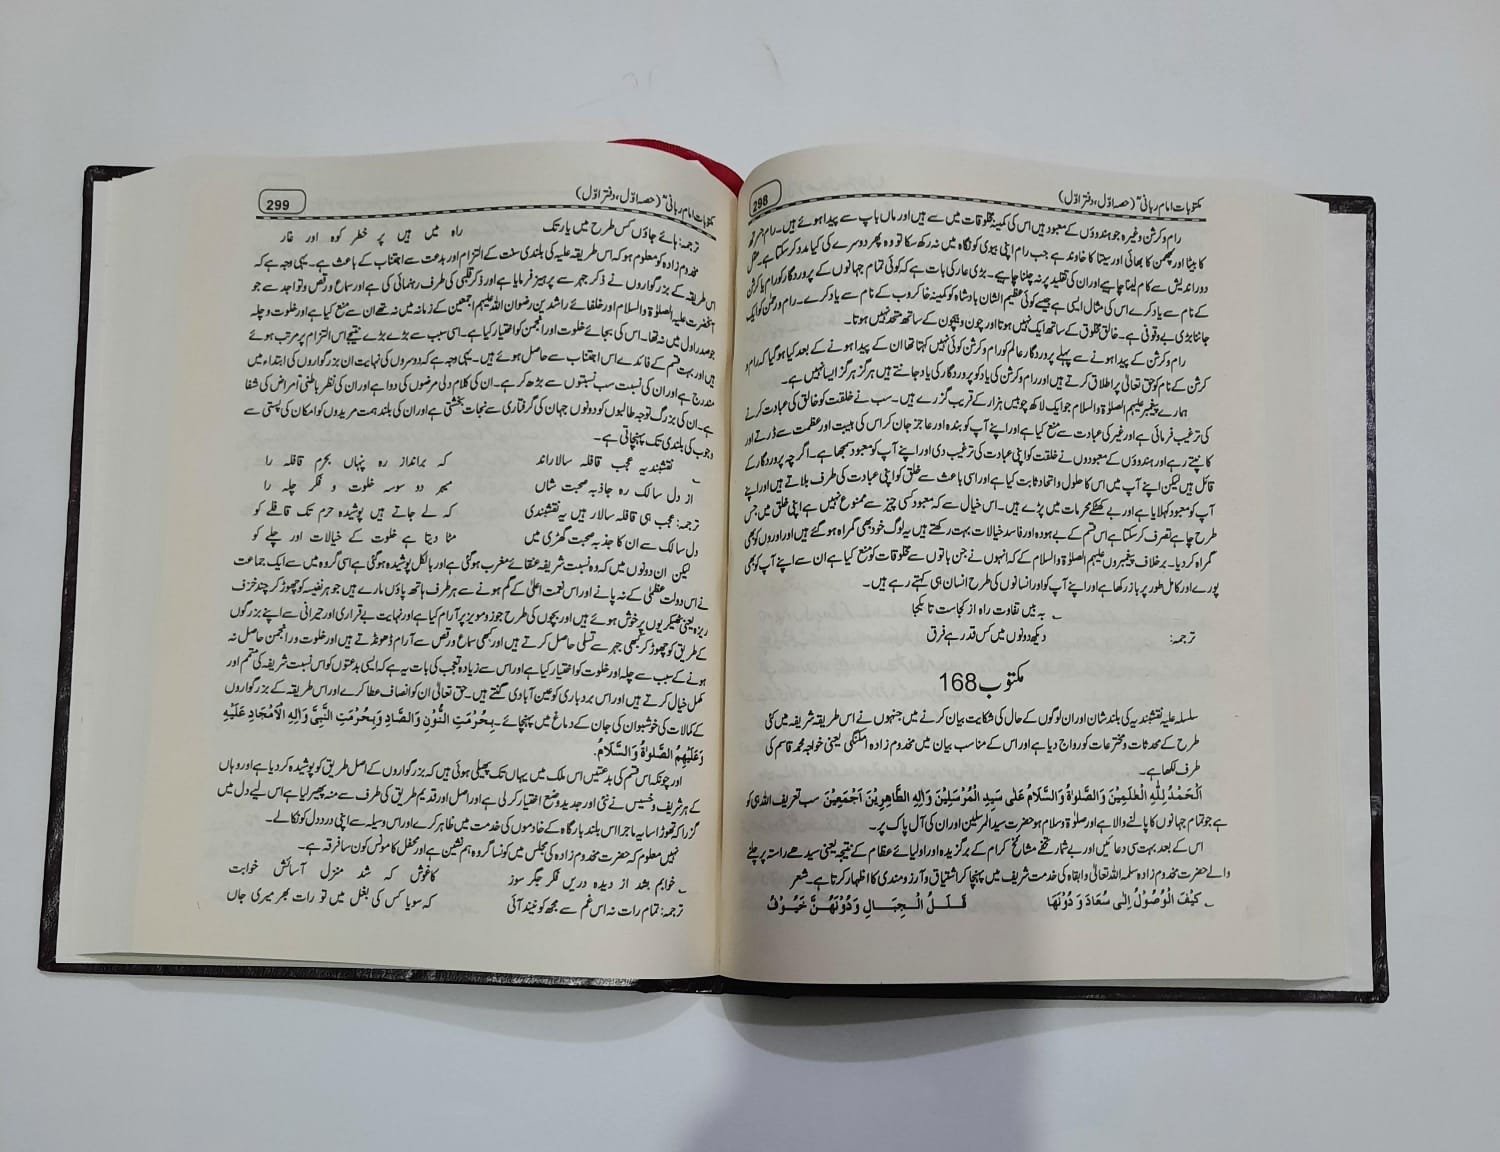 مکتوبات امام ربانیؒ (حصہ اوّل، دفتر اوّل)
298
رام وکرشن وغیرہ جو ہندوؤں کے معبود ہیں اس کی کمینہ مخلوقات میں سے ہیں اور ماں باپ سے پیدا ہوئے ہیں۔ رام جسرتھ
کا بیٹا اور لچھمن کا بھائی اور سیتا کا خاوند ہے جب رام اپنی بیوی کو نگاہ میں نہ رکھ سکا تو وہ پھر دوسرے کی کیا مدد کر سکتا ہے۔ عقل
دور اندیش سے کام لینا چاہیے اور ان کی تقلید پر نہ چلنا چاہیے۔ بڑی عار کی بات ہے کہ کوئی تمام جہانوں کے پروردگار کو رام یا کرشن
کے نام سے یاد کرے اس کی مثال ایسی ہے جیسے کوئی عظیم الشان بادشاہ کو کمینہ خاکروب کے نام سے یاد کرے۔ رام ورحمٰن کو ایک
جاننا بڑی بے وقوفی ہے۔ خالق مخلوق کے ساتھ ایک نہیں ہوتا اور چون و بیچون کے ساتھ متحد نہیں ہوتا۔
رام وکرشن کے پیدا ہونے سے پہلے پروردگار عالم کو رام وکرشن کوئی نہیں کہتا تھا ان کے پیدا ہونے کے بعد کیا ہو گیا کہ رام و
کرشن کے نام کو حق تعالیٰ پر اطلاق کرتے ہیں اور رام وکرشن کی یاد کو پروردگار کی یاد جانتے ہیں ہرگز ہرگز ایسا نہیں ہے۔
ہمارے پیغمبر علیہم الصلوٰۃ والسلام جو ایک لاکھ چوبیس ہزار کے قریب گزرے ہیں۔ سب نے خلقت کو خالق کی عبادت کرنے
کی ترغیب فرمائی ہے اور غیر کی عبادت سے منع کیا ہے اور اپنے آپ کو بندہ اور عاجز جان کر اس کی ہیبت اور عظمت سے ڈرتے اور
کانپتے رہے اور ہندوؤں کے معبودوں نے خلقت کو اپنی عبادت کی ترغیب دی اور اپنے آپ کو معبود سمجھا ہے۔ اگرچہ پروردگار کے
قائل ہیں لیکن اپنے آپ میں اس کا حلول و اتحاد ثابت کیا ہے اور اسی باعث سے خلق کو اپنی عبادت کی طرف بلاتے ہیں اور اپنے
آپ کو معبود کہلایا ہے اور بے کھٹکے محرمات میں پڑے ہیں۔ اس خیال سے کہ معبود کسی چیز سے ممنوع نہیں ہے اپنی خلق میں جس
طرح چاہے تصرف کر سکتا ہے اس قسم کے بے ہودہ اور فاسد خیالات بہت رکھتے ہیں یہ لوگ خود بھی گمراہ ہو گئے ہیں اور اوروں کو بھی
گمراہ کر دیا۔ برخلاف پیغمبروں علیہم الصلوٰۃ والسلام کے کہ انہوں نے جن باتوں سے مخلوقات کو منع کیا ہے ان سے اپنے آپ کو بھی
پورے اور کامل طور پر باز رکھا ہے اور اپنے آپ کو اور انسانوں کی طرح انسان ہی کہتے رہے ہیں۔
بہ بیں تفاوت راہ از کجاست تا بکجا
ترجمہ: دیکھ دونوں میں کس قدر ہے فرق
مکتوب 168
سلسلہ علیہ نقشبندیہ کی بلند شان اور ان لوگوں کے حال کی شکایت بیان کرنے میں جنہوں نے اس طریقہ شریفہ میں کئی
طرح کے محدثات و مخترعات کو رواج دیا ہے اور اس کے مناسب بیان میں مخدوم زادہ امکنگی یعنی خواجہ محمد قاسم کی
طرف لکھا ہے۔
اَلْحَمْدُ لِلّٰہِ الْعٰلَمِیْنَ وَالصَّلٰوۃُ وَالسَّلَامُ عَلٰی سَیِّدِ الْمُرْسَلِیْنَ وَاٰلِہِ الطَّاھِرِیْنَ اَجْمَعِیْنَ سب تعریف اللہ ہی کو
ہے جو تمام جہانوں کا پالنے والا ہے اور صلوٰۃ وسلام ہو حضرت سید المرسلین اور ان کی آل پاک پر۔
اس کے بعد بہت سی دعائیں اور بے شمار تحفے مشائخ کرام کے برگزیدہ اور اولیائے عظام کے نتیجہ یعنی سیدھے راستہ پر چلنے
والے حضرت مخدوم زادہ سلمہ اللہ تعالیٰ و ابقاہ کی خدمت شریف میں پہنچا کر اشتیاق و آرزو مندی کا اظہار کرتا ہے۔ شعر
کَیْفَ الْوُصُوْلُ اِلٰی سُعَادَ وَ دُوْنَھَا قُلَلُ الْجِبَالِ وَدُوْنَھُنَّ خُیُوْفُ
مکتوبات امام ربانیؒ (حصہ اوّل، دفتر اوّل)
299
ترجمہ: ہائے جاؤں کس طرح میں یار تک راہ میں ہیں پر خطر کوہ اور غار
مخدوم زادہ کو معلوم ہو کہ اس طریقہ علیہ کی بلندی سنت کے التزام اور بدعت سے اجتناب کے باعث ہے۔ یہی وجہ ہے کہ
اس طریقہ کے بزرگواروں نے ذکر جہر سے پرہیز فرمایا ہے اور ذکر قلبی کی طرف رہنمائی کی ہے اور سماع و رقص و تواجد سے جو
آنحضرت علیہ الصلوٰۃ والسلام اور خلفائے راشدین رضوان اللہ علیہم اجمعین کے زمانہ میں نہ تھے ان سے منع کیا ہے اور خلوت و چلہ
جو صدر اول میں نہ تھا۔ اس کی بجائے خلوت در انجمن کو اختیار کیا ہے۔ اسی سبب سے بڑے بڑے نتیجے اس التزام پر مرتب ہوئے
ہیں اور بہت قسم کے فائدے اس اجتناب سے حاصل ہوئے ہیں۔ یہی وجہ ہے کہ دوسروں کی نہایت ان بزرگواروں کی ابتداء میں
مندرج ہے اور ان کی نسبت سب نسبتوں سے بڑھ کر ہے۔ ان کی کلام دلی مرضوں کی دوا ہے اور ان کی نظر باطنی امراض کی شفا
ہے۔ ان کی بزرگ توجہ طالبوں کو دونوں جہان کی گرفتاری سے نجات بخشتی ہے اور ان کی بلند ہمت مریدوں کو امکان کی پستی سے
وجوب کی بلندی تک پہنچاتی ہے۔
نقشبندیہ عجب قافلہ سالاراند کہ برانداز رہ پنہاں بحرم قافلہ را
از دل سالک رہ جاذبہ صحبت شاں میبرد وسوسہ خلوت و فکر چلہ را
ترجمہ: عجب ہی قافلہ سالار ہیں یہ نقشبندی کہ لے جاتے ہیں پوشیدہ حرم تک قافلے کو
دل سالک سے ان کا جذبہ صحبت گھڑی میں مٹا دیتا ہے خلوت کے خیالات اور چلے کو
لیکن ان دونوں میں کہ وہ نسبت شریفہ عنقائے مغرب ہو گئی ہے اور بالکل پوشیدہ ہو گئی ہے اسی گروہ میں سے ایک جماعت
نے اس دولت عظمیٰ کے نہ پانے اور اس نعمت اعلیٰ کے گم ہونے سے ہر طرف ہاتھ پاؤں مارے ہیں جوہر نفیسہ کو چھوڑ کر چند خزف
ریزہ یعنی ٹھیکریوں پر خوش ہوئے ہیں اور بچوں کی طرح جوز و مویز پر آرام کیا ہے اور نہایت بے قراری اور حیرانی سے اپنے بزرگوں
کے طریق کو چھوڑ کر کبھی جہر سے تسلی حاصل کرتے ہیں اور کبھی سماع و رقص سے آرام ڈھونڈتے ہیں اور خلوت در انجمن حاصل نہ
ہونے کے سبب سے چلہ اور خلوت کو اختیار کیا ہے اور اس سے زیادہ تعجب کی بات یہ ہے کہ ایسی بدعتوں کو اس نسبت شریفہ کی متمم اور
مکمل خیال کرتے ہیں اور اس بردباری کو عین آبادی گنتے ہیں۔ حق تعالیٰ ان کو انصاف عطا کرے اور اس طریقہ کے بزرگواروں
کے کمالات کی خوشبو ان کی جان کے دماغ میں پہنچائے۔ بِحُرْمَتِ النُّوْنِ وَالصَّادِ وَبِحُرْمَتِ النَّبِیِّ وَاٰلِہِ الْاَمْجَادِ عَلَیْہِ
وَعَلَیْھِمُ الصَّلٰوۃُ وَالسَّلَامُ.
اور چونکہ اس قسم کی بدعتیں اس ملک میں یہاں تک پھیلی ہوئی ہیں کہ بزرگواروں کے اصل طریق کو پوشیدہ کر دیا ہے اور وہاں
کے ہر شریف و خسیس نے نئی اور جدید وضع اختیار کر لی ہے اور اصل اور قدیم طریق کی طرف سے منہ پھیر لیا ہے اس لیے دل میں
گزرا کہ تھوڑا سا یہ ماجرا اس بلند بارگاہ کے خادموں کی خدمت میں ظاہر کرے اور اس وسیلہ سے اپنی درد دل کو نکالے۔
نہیں معلوم کہ حضرت مخدوم زادہ کی مجلس میں کونسا گروہ ہم نشین ہے اور محفل کا مونس کون سا فرقہ ہے۔
خوابم بشد از دیدہ دریں فکر جگر سوز کاغوش کہ شد منزل آسائش خوابت
ترجمہ: تمام رات نہ اس غم سے مجھ کو نیند آئی کہ سویا کس کی بغل میں تو رات بھر میری جاں